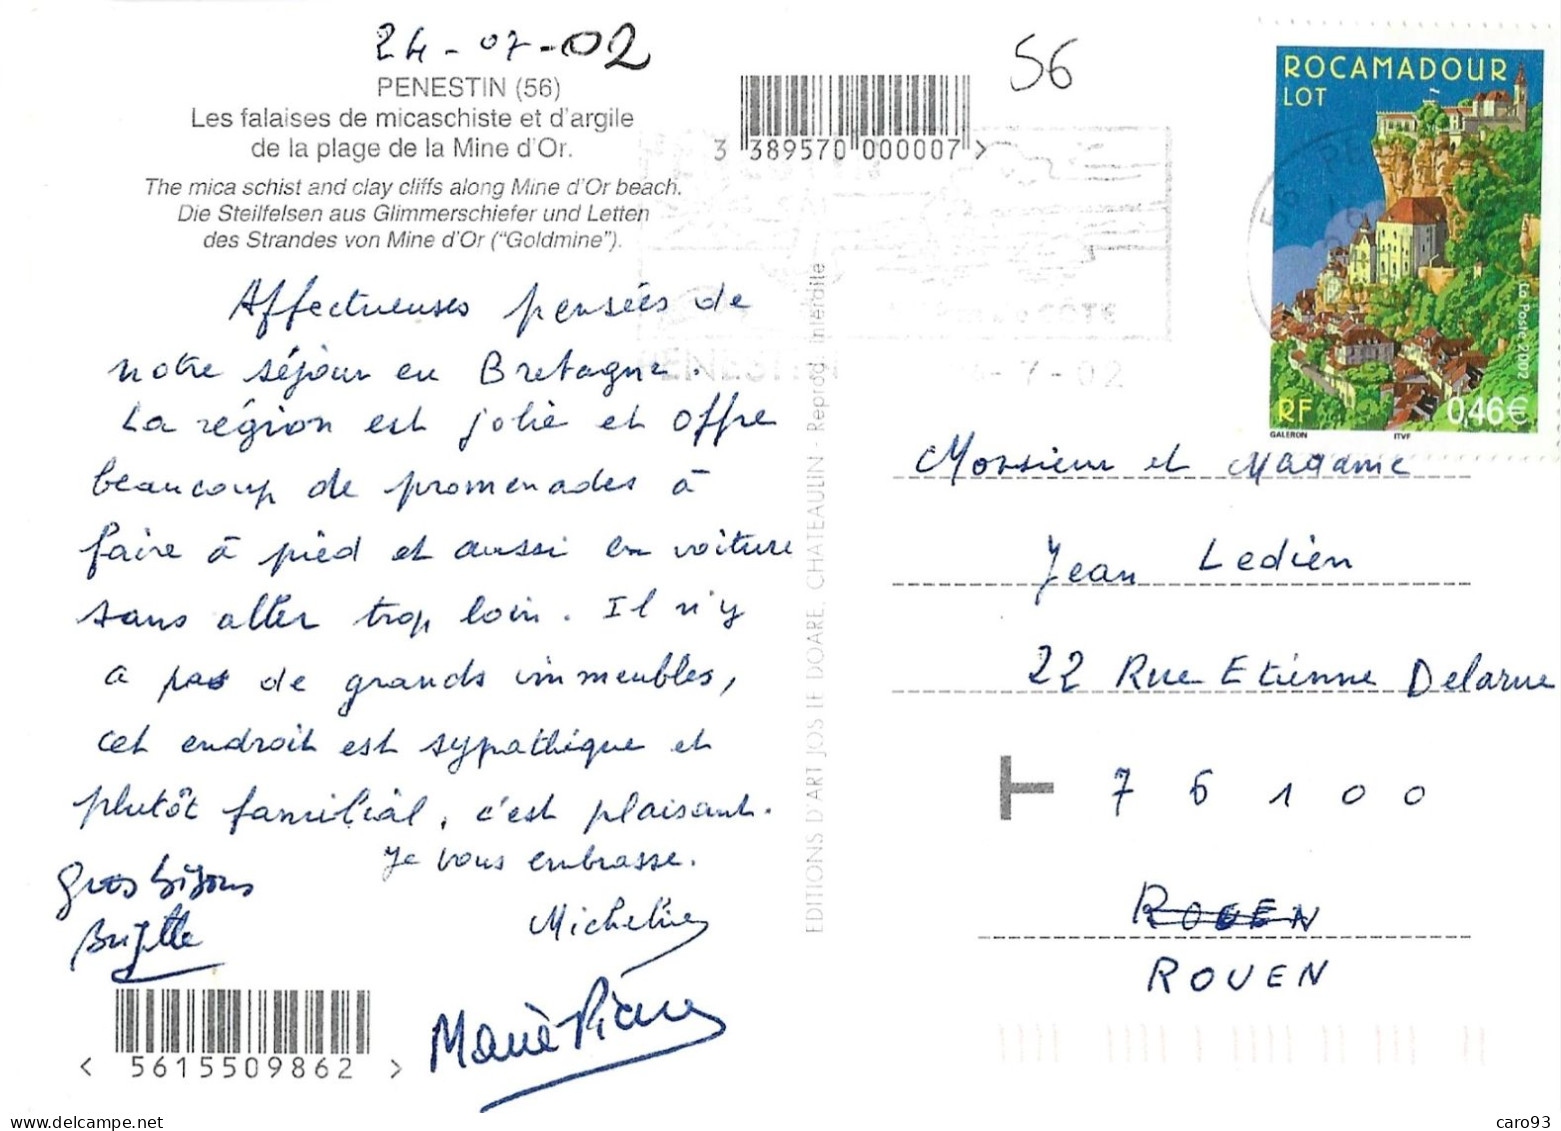 24-07-02
PENESTIN (56)
Les falaises de micaschiste et d'argile
de la plage de la Mine d'Or.
The mica schist and clay cliffs along Mine d'Or beach.
Die Steilfelsen aus Glimmerschiefer und Letten
des Strandes von Mine d'Or ("Goldmine").
Affectueuses pensées de
notre séjour en Bretagne.
La région est jolie et offre
beaucoup de promenades à
faire à pied et aussi en voiture
sans aller trop loin. Il n'y
a pas de grands immeubles,
cet endroit est sypathique et
plutôt familial, c'est plaisant.
Je vous embrasse.
Gros bisous
Brigitte
Micheline
Marie Pierre
< 5615509862 >
3 389570 000007 >
56
EDITIONS D'ART JOS LE DOARE, CHATEAULIN - Reprod. interdite
COTE
PENESTIN
-7-02
ROCAMADOUR
LOT
La Poste 2002
RF 0,46€
GALERON ITVF
Monsieur et Madame
Jean Ledien
22 Rue Etienne Delarue
T 76100
ROUEN
ROUEN
delcampe.net
caro93